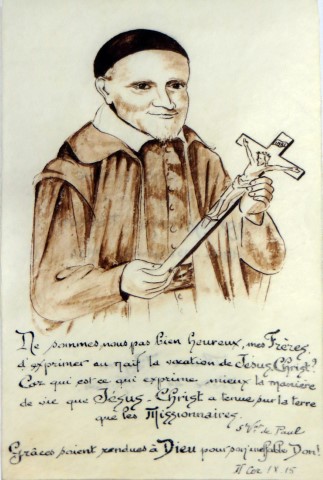 INRI
Ne sommes nous pas bien heureux, mes Frères,
d'exprimer au naïf la vocation de Jésus Christ?
Car qui est ce qui exprime mieux la manière
de vie que Jésus-Christ a tenue sur la terre
que les Missionnaires.
St Vt de Paul
Grâces soient rendues à Dieu pour son ineffable Don!
II Cor IX.15